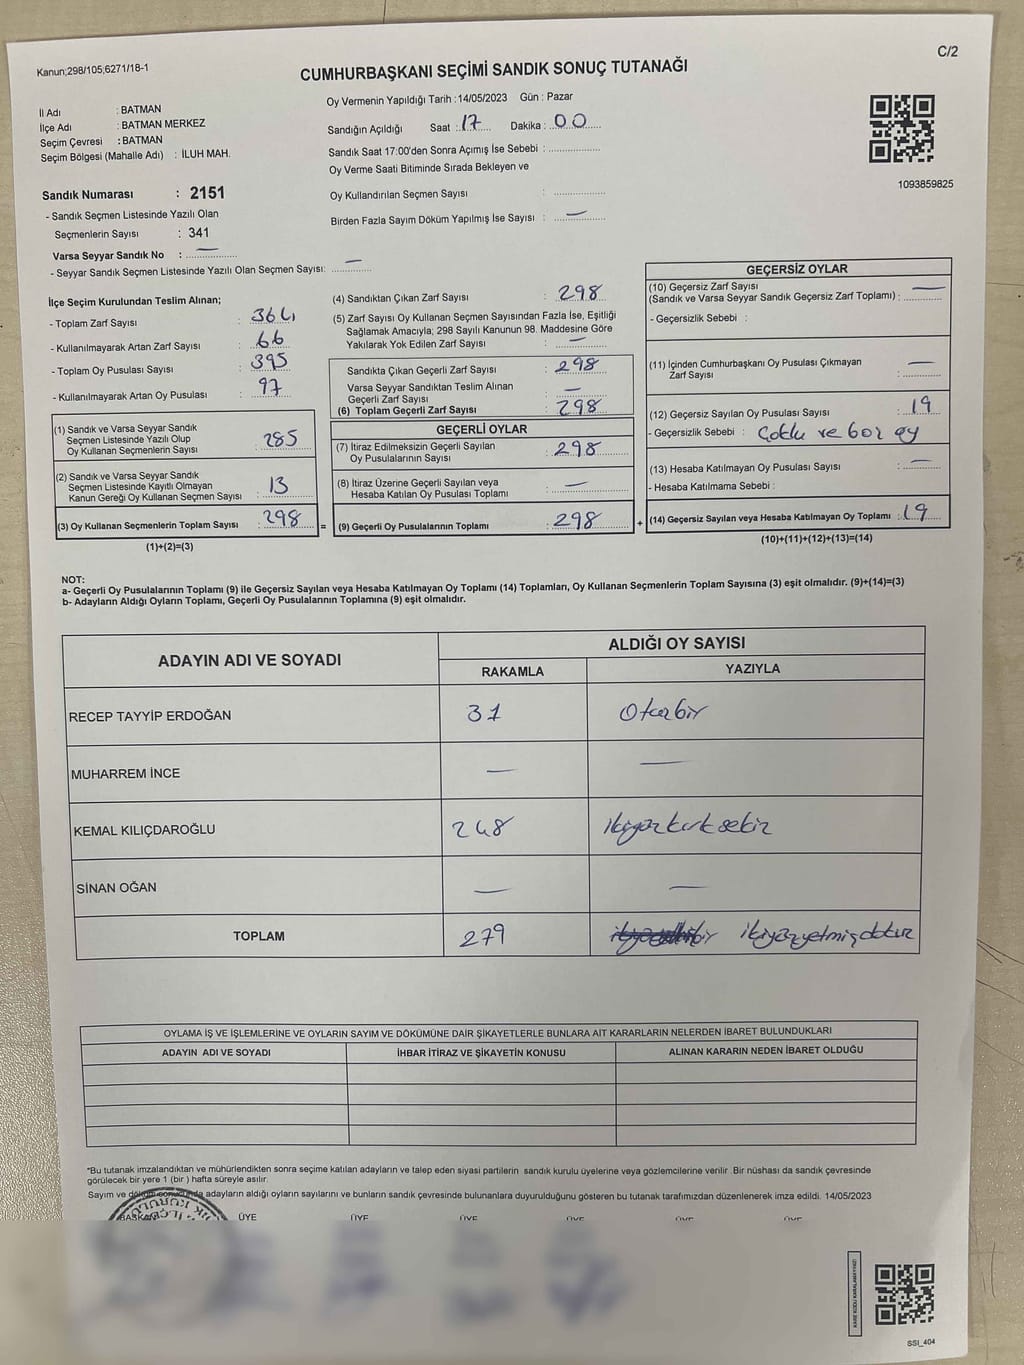 C/2
Kanun;298/105;6271/18-1
CUMHURBAŞKANI SEÇİMİ SANDIK SONUÇ TUTANAĞI
İl Adı : BATMAN
İlçe Adı : BATMAN MERKEZ
Seçim Çevresi : BATMAN
Seçim Bölgesi (Mahalle Adı) : İLUH MAH.
Oy Vermenin Yapıldığı Tarih :14/05/2023 Gün : Pazar
Sandığın Açıldığı Saat : 17 Dakika : 00
Sandık Saat 17:00'den Sonra Açımış İse Sebebi :
Oy Verme Saati Bitiminde Sırada Bekleyen ve
Oy Kullandırılan Seçmen Sayısı :
Birden Fazla Sayım Döküm Yapılmış İse Sayısı : —
1093859825
Sandık Numarası : 2151
- Sandık Seçmen Listesinde Yazılı Olan
Seçmenlerin Sayısı : 341
Varsa Seyyar Sandık No : —
- Seyyar Sandık Seçmen Listesinde Yazılı Olan Seçmen Sayısı: —
İlçe Seçim Kurulundan Teslim Alınan;
- Toplam Zarf Sayısı : 364
- Kullanılmayarak Artan Zarf Sayısı : 66
- Toplam Oy Pusulası Sayısı : 395
- Kullanılmayarak Artan Oy Pusulası : 97
(1) Sandık ve Varsa Seyyar Sandık
Seçmen Listesinde Yazılı Olup
Oy Kullanan Seçmenlerin Sayısı : 285
(2) Sandık ve Varsa Seyyar Sandık
Seçmen Listesinde Kayıtlı Olmayan
Kanun Gereği Oy Kullanan Seçmen Sayısı : 13
(3) Oy Kullanan Seçmenlerin Toplam Sayısı : 298
(1)+(2)=(3)
(4) Sandıktan Çıkan Zarf Sayısı : 298
(5) Zarf Sayısı Oy Kullanan Seçmen Sayısından Fazla İse, Eşitliği
Sağlamak Amacıyla; 298 Sayılı Kanunun 98. Maddesine Göre
Yakılarak Yok Edilen Zarf Sayısı : —
Sandıkta Çıkan Geçerli Zarf Sayısı : 298
Varsa Seyyar Sandıktan Teslim Alınan
Geçerli Zarf Sayısı : —
(6) Toplam Geçerli Zarf Sayısı : 298
GEÇERLİ OYLAR
(7) İtiraz Edilmeksizin Geçerli Sayılan
Oy Pusulalarının Sayısı : 298
(8) İtiraz Üzerine Geçerli Sayılan veya
Hesaba Katılan Oy Pusulası Toplamı : —
= (9) Geçerli Oy Pusulalarının Toplamı : 298 +
GEÇERSİZ OYLAR
(10) Geçersiz Zarf Sayısı —
(Sandık ve Varsa Seyyar Sandık Geçersiz Zarf Toplamı) :
- Geçersizlik Sebebi :
(11) İçinden Cumhurbaşkanı Oy Pusulası Çıkmayan —
Zarf Sayısı :
(12) Geçersiz Sayılan Oy Pusulası Sayısı : 19
- Geçersizlik Sebebi : Çoklu ve boz oy
(13) Hesaba Katılmayan Oy Pusulası Sayısı : —
- Hesaba Katılmama Sebebi :
(14) Geçersiz Sayılan veya Hesaba Katılmayan Oy Toplamı : 19
(10)+(11)+(12)+(13)=(14)
NOT:
a- Geçerli Oy Pusulalarının Toplamı (9) ile Geçersiz Sayılan veya Hesaba Katılmayan Oy Toplamı (14) Toplamları, Oy Kullanan Seçmenlerin Toplam Sayısına (3) eşit olmalıdır. (9)+(14)=(3)
b- Adayların Aldığı Oyların Toplamı, Geçerli Oy Pusulalarının Toplamına (9) eşit olmalıdır.
ADAYIN ADI VE SOYADI ALDIĞI OY SAYISI
RAKAMLA YAZIYLA
RECEP TAYYİP ERDOĞAN 31 Otuzbir
MUHARREM İNCE — —
KEMAL KILIÇDAROĞLU 248 ikiyüzkırksekiz
SİNAN OĞAN — —
TOPLAM 279 ikiyüzyetmişdokuz
OYLAMA İŞ VE İŞLEMLERİNE VE OYLARIN SAYIM VE DÖKÜMÜNE DAİR ŞİKAYETLERLE BUNLARA AİT KARARLARIN NELERDEN İBARET BULUNDUKLARI
ADAYIN ADI VE SOYADI İHBAR İTİRAZ VE ŞİKAYETİN KONUSU ALINAN KARARIN NEDEN İBARET OLDUĞU
*Bu tutanak imzalandıktan ve mühürlendikten sonra seçime katılan adayların ve talep eden siyasi partilerin sandık kurulu üyelerine veya gözlemcilerine verilir .Bir nüshası da sandık çevresinde
görülecek bir yere 1 (bir ) hafta süreyle asılır.
Sayım ve döküm sonucunda adayların aldığı oyların sayılarını ve bunların sandık çevresinde bulunanlara duyurulduğunu gösteren bu tutanak tarafımızdan düzenlenerek imza edildi. 14/05/2023
BAŞKAN ÜYE ÜYE ÜYE ÜYE ÜYE ÜYE
SSI_404